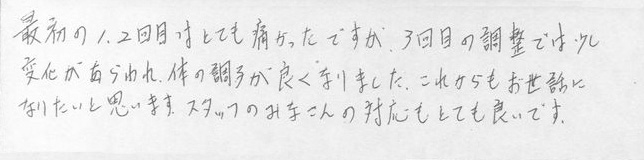 最初の1.2回目はとても痛かったですが、3回目の調整では少し
変化があらわれ、体の調子が良くなりました。これからもお世話に
なりたいと思います。スタッフのみなさんの対応もとても良いです。